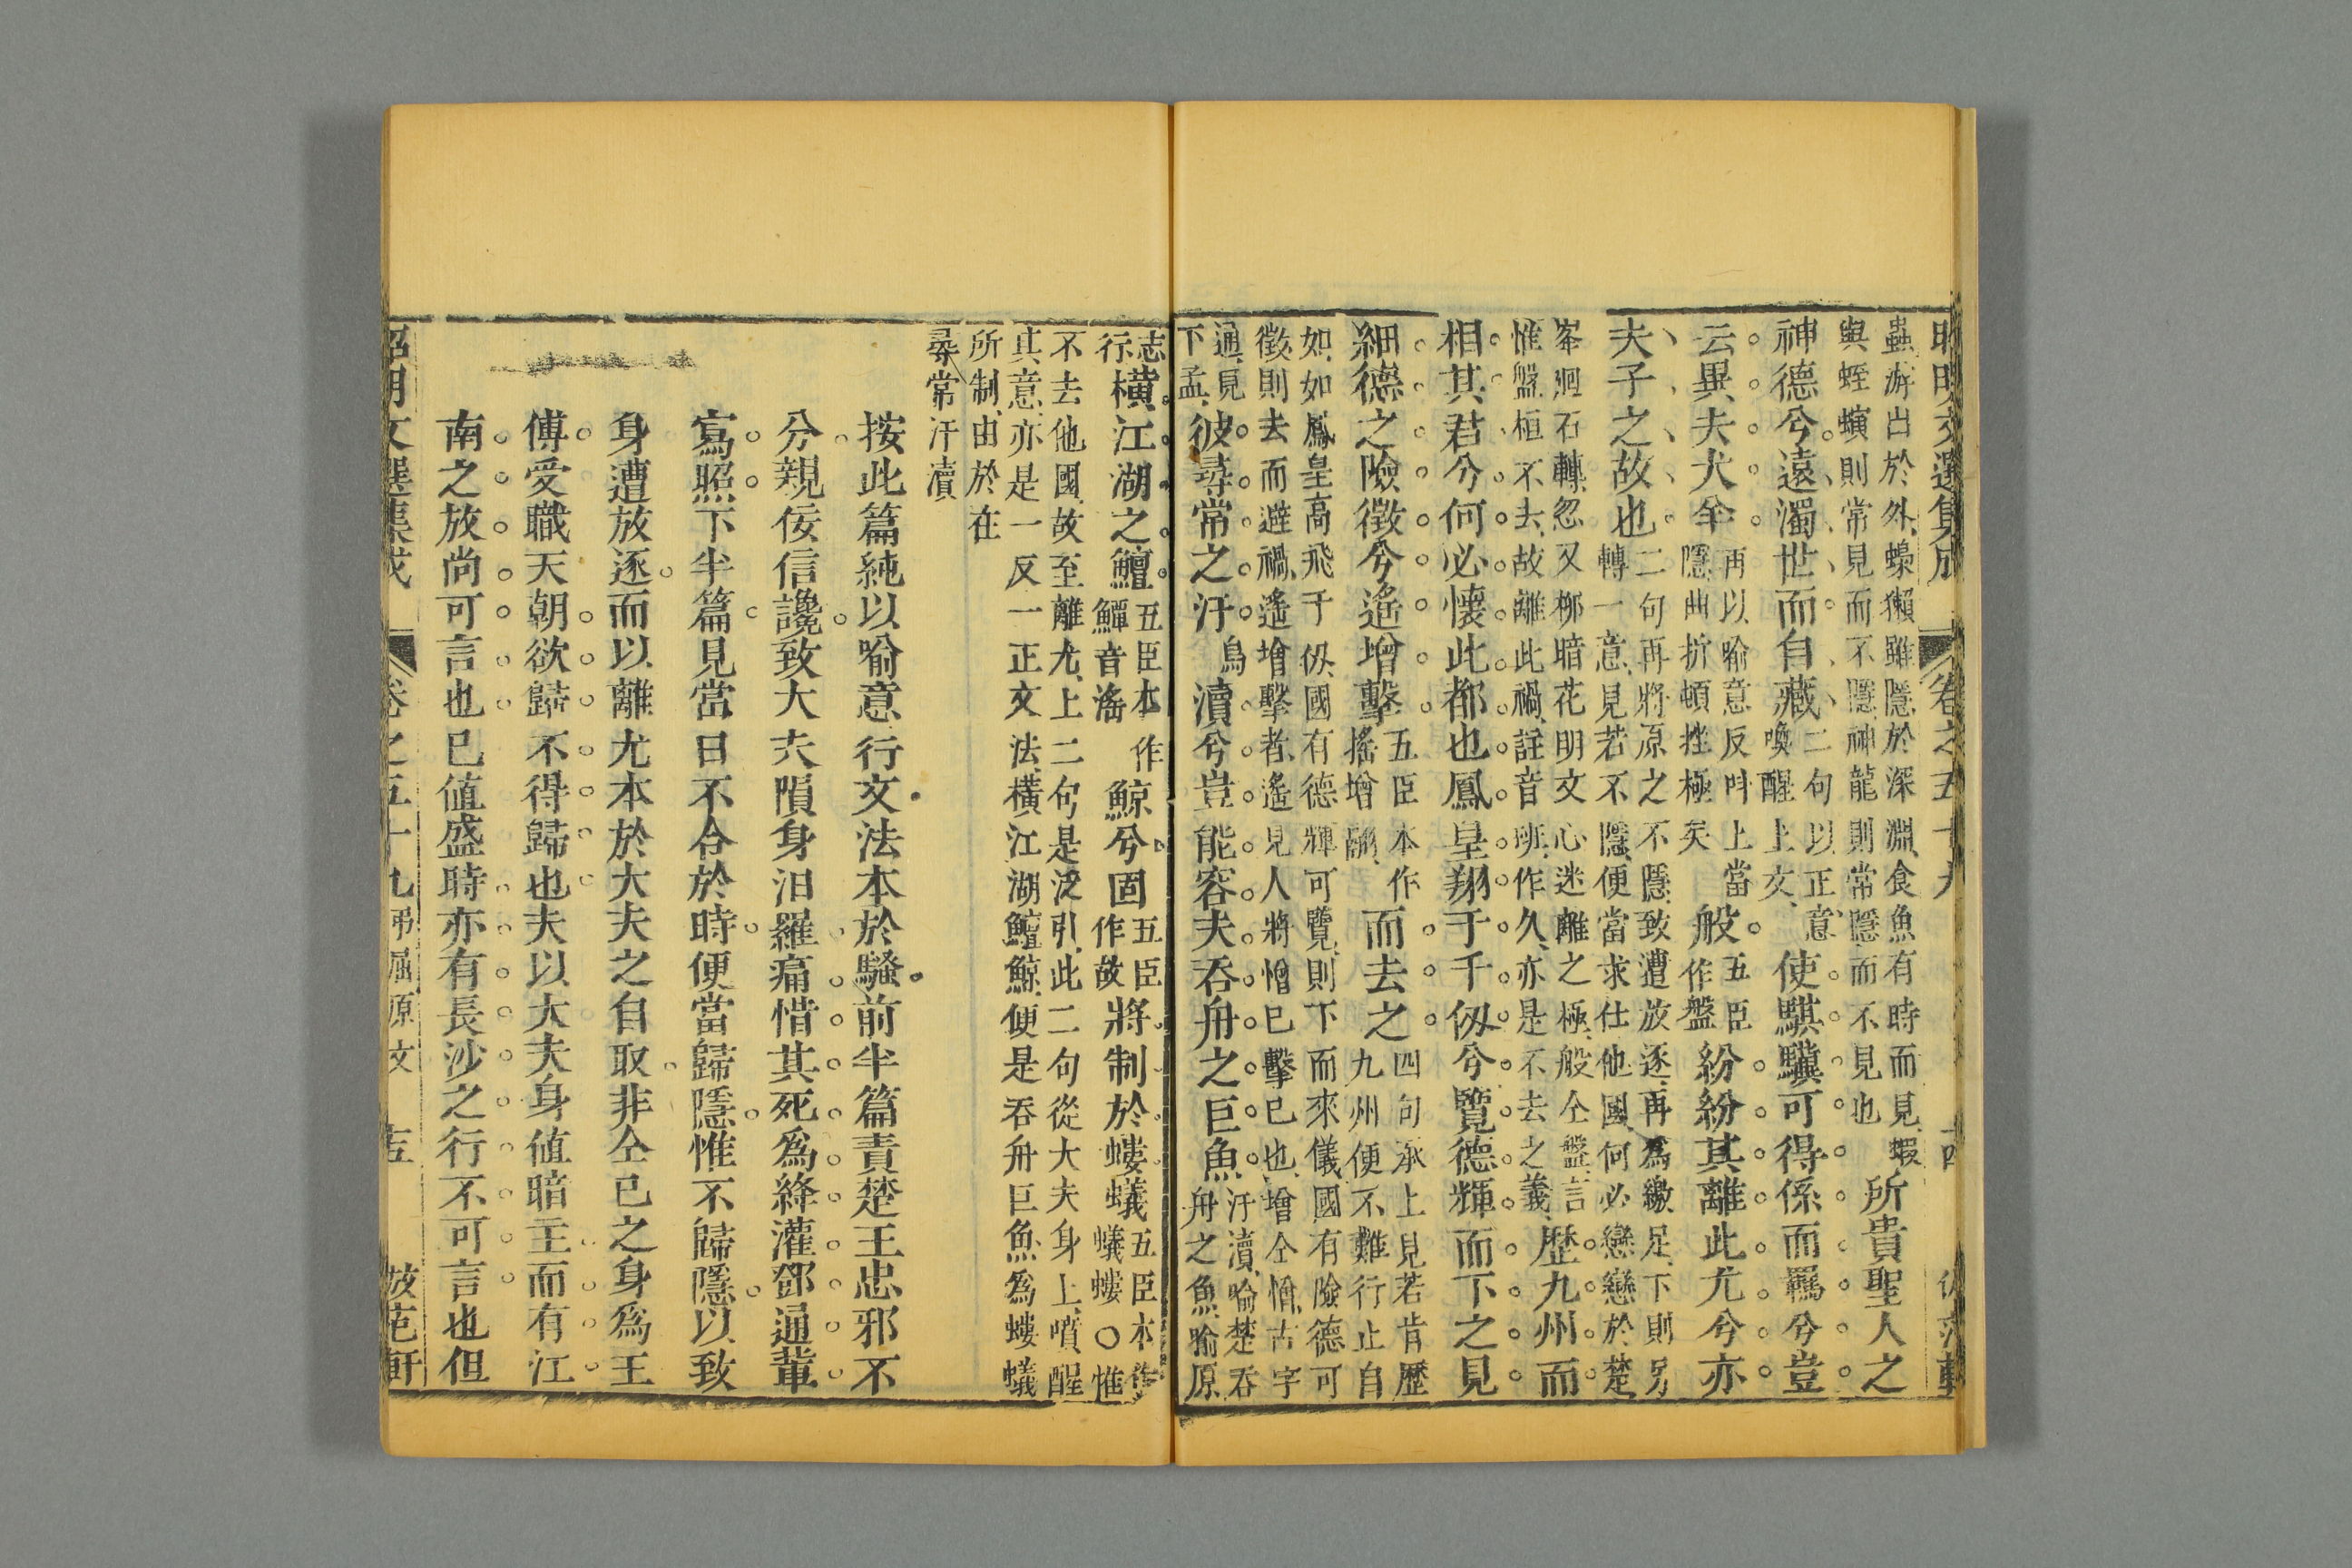 昭明文選集成 卷之五十九 十四
蟲游出於外蟂獺雖隱於深淵食魚有時而見蝦
與蛭螾則常見而不隱神龍則常隱而不見也
所貴聖人之
神德兮遠濁世而自藏二句以正意喚醒上文使騏驥可得係而羈兮豈
云異夫犬羊再以喻意反呌上當隱曲折頓挫極矣般五臣作盤紛紛其離此尤兮亦
夫子之故也二句再將原之不隱致遭放逐再為繳足下則另轉一意見若不隱便當求仕他國何必戀戀於楚
峯迴石轉忽又柳暗花明文心迷離之極般仝盤言
惟盤桓不去故離此禍註音班作久亦是不去之義
歷九州而
相其君兮何必懷此都也鳳皇翔于千仞兮覽德輝而下之見
細德之險徵兮遙增擊五臣本作搖增翮而去之四句承上見若肯歷九州便不難行止自
如如鳳皇高飛于仭國有德輝可覽則下而來儀國有險德可
徵則去而避禍遙增擊者遙見人將憎已擊已也增仝憎古字
通見下孟彼尋常之汙烏瀆兮豈能容夫吞舟之巨魚汙瀆喻楚吞舟之魚喻原
志行橫江湖之鱣五臣本作鱏音滛鯨兮固五臣作故將制於螻蟻五臣本作蟻螻〇惟
不去他國故至離尤上二句是泛引此二句從大夫身上噴醒
其意亦是一反一正文法橫江湖鱣鯨便是吞舟巨魚為螻蟻
所制由於在
尋常汙瀆
按此篇純以喻意行文法本於騷前半篇責楚王忠邪不
分親佞信讒致大夫隕身汨羅痛惜其死為絳灌鄧通輩
寫照下半篇見當日不合於時便當歸隱惟不歸隱以致
身遭放逐而以離尤本於大夫之自取非仝已之身為王
傅受職天朝欲歸不得歸也夫以大夫身值暗主而有江
南之放尚可言也已值盛時亦有長沙之行不可言也但
昭明文選集成 卷之五十九 弔屈原文 十五